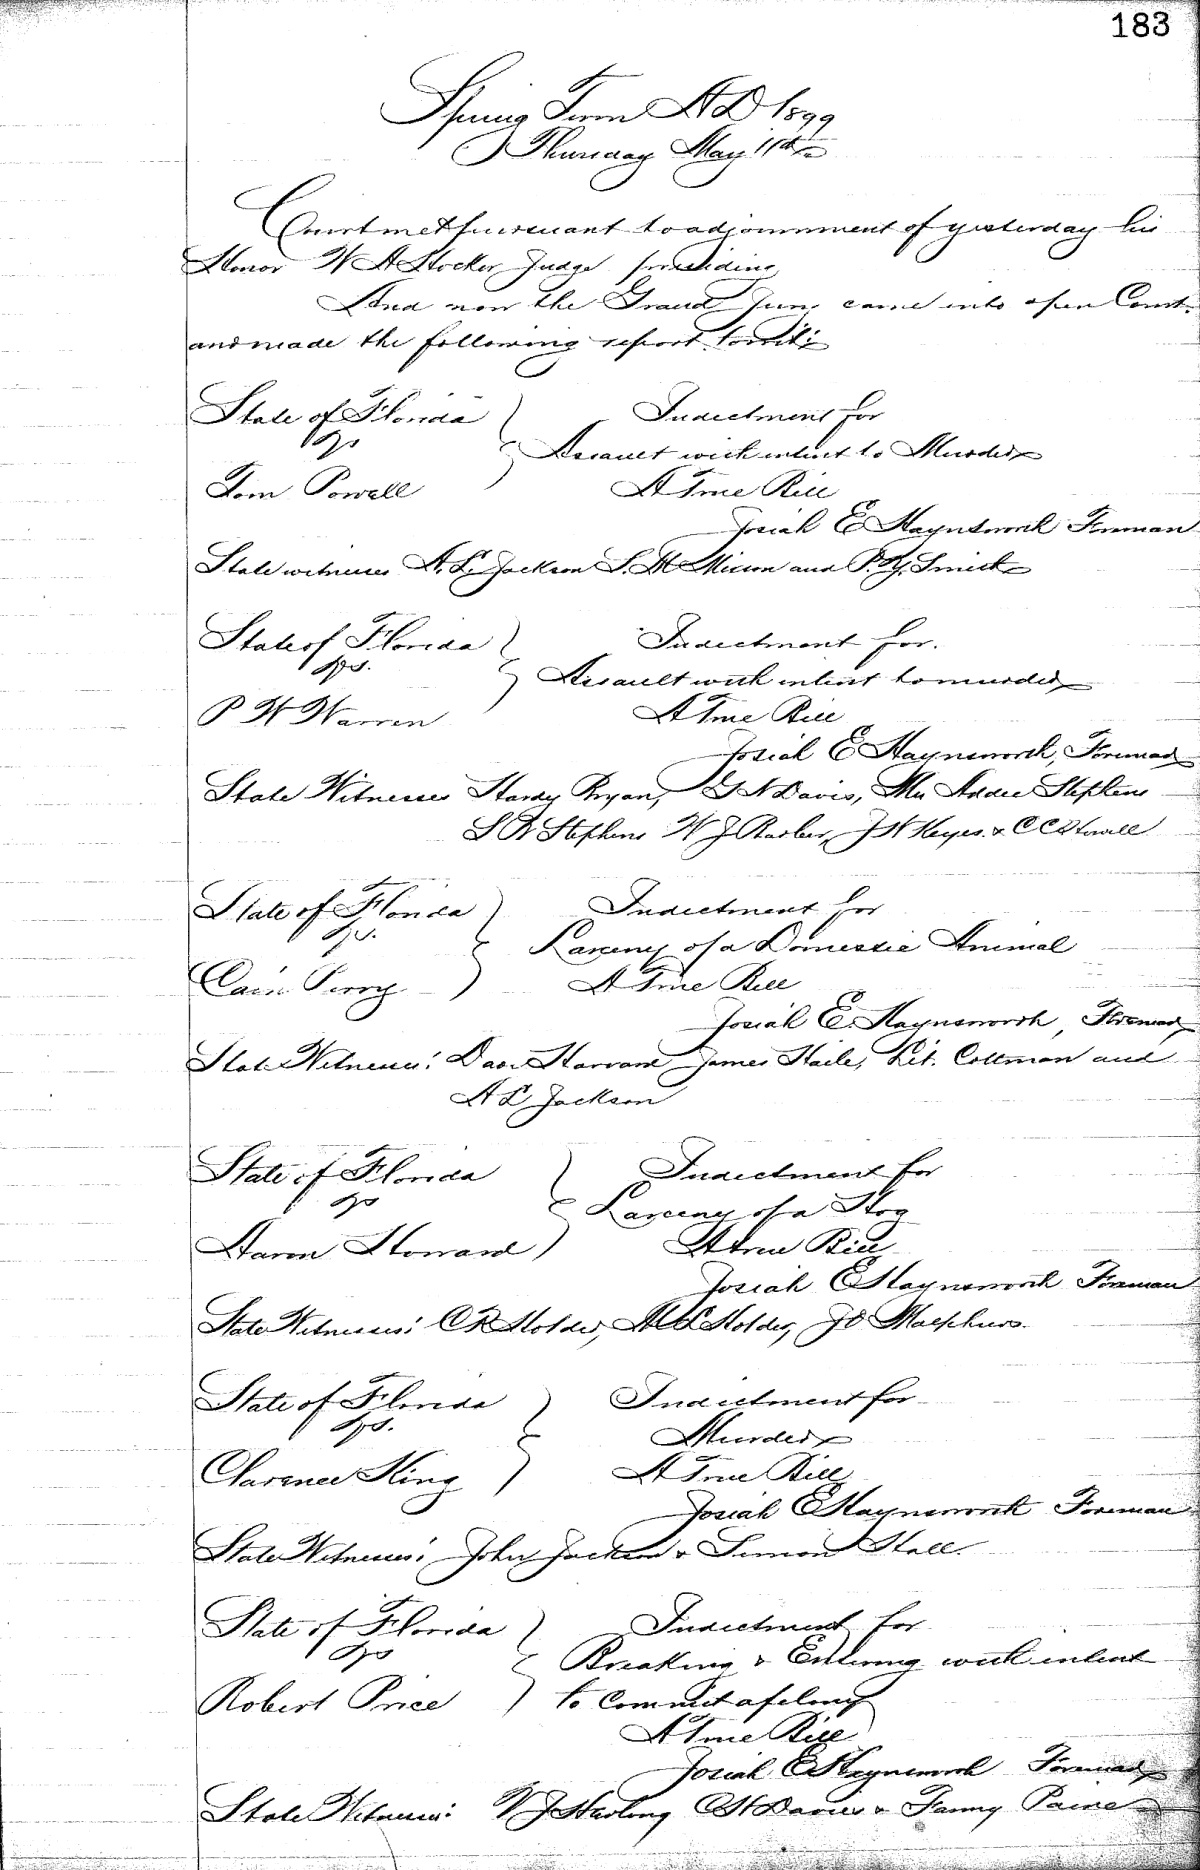 183
Spring Term A D 1899
Thursday May 11th
Court met pursuant to adjournment of yesterday his
Honor W A Hocker Judge presiding
And now the Grand Jury came into open Court
and made the following report towit:
State of Florida Indictment for
vs Assault with intent to Murder
Tom Powell A True Bill
Josiah E Haynsworth Foreman
State witnesses A. L. Jackson S. M and P. Y. Smith
State of Florida Indictment for.
vs. Assault with intent to murder
P W Warren A True Bill
Josiah E Haynsworth, Foreman
State Witnesses Hardy Bryan, G N Davis, Mrs Addie Stephens
S B Stephens W J Barber, J W Keyes & C C Stowell
State of Florida Indictment for
vs. Larceny of a Domestic Animal
Cain Perry A True Bill
Josiah E. Haynsworth, Foreman
State Witnesses: Dave Harvard James Haile, Lit. Coleman and
A L Jackson
State of Florida Indictment for
vs Larceny of a Hog
Aaron Howard A true Bill
Josiah E Haynsworth Foreman
State Witnesses: C R Holder, M L Holder, J D Malphurs.
State of Florida Indictment for
vs. Murder
Clarence King A True Bill
Josiah E Haynsworth Foreman
State Witnesses: John Jackson & Simon Hall.
State of Florida Indictment for
vs Breaking & Entering with intent
Robert Price to commit a felony
A True Bill
Josiah E Haynsworth Foreman
State Witnesses: W J Harling C H Davis & Fanny Paine